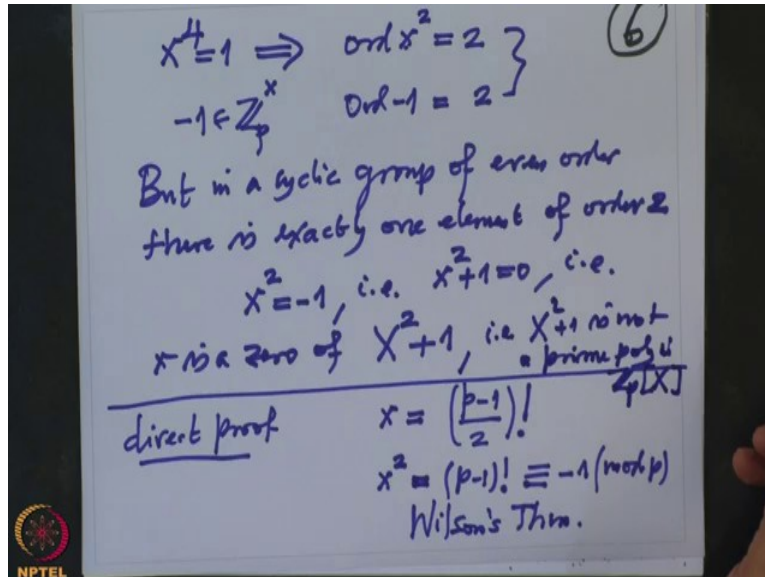 6
x⁴=1 ⟹ ord x² = 2 }
-1 ∈ ℤₚˣ ord -1 = 2
But in a cyclic group of even order
there is exactly one element of order 2
x² = -1, i.e. x²+1=0, i.e.
x is a zero of X²+1, i.e X²+1 is not
a prime poly in
ℤₚ[X]
direct proof x = (p-1/2)!
x² = (p-1)! ≡ -1 (mod p)
Wilson's Thm.
NPTEL